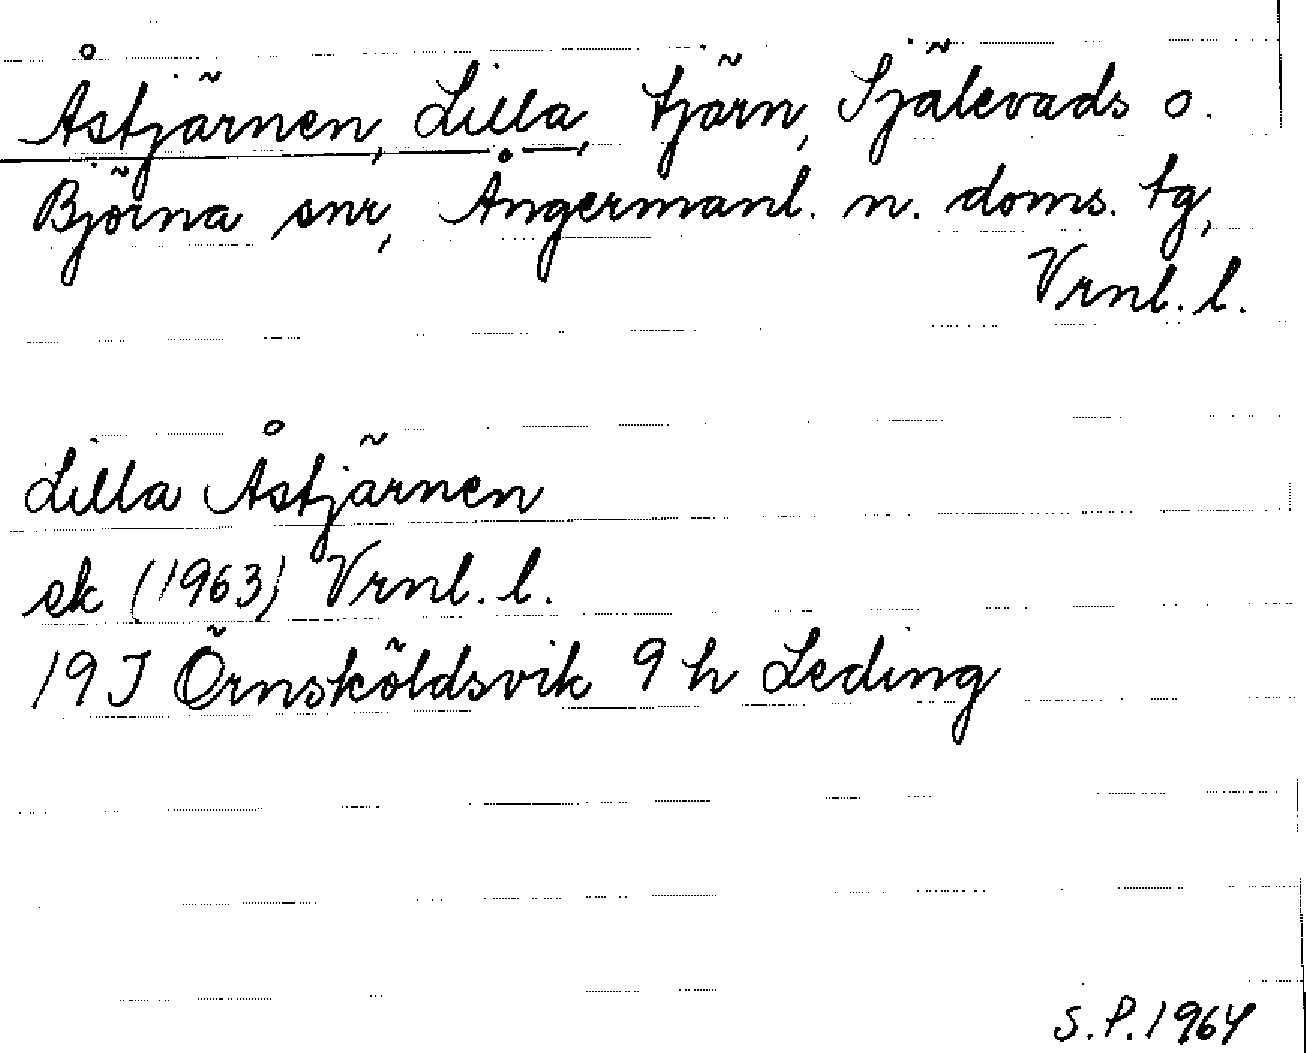 Åstjärnen, Lilla, tjärn, Själevads o.
Björna snr, Ångermanl. n. doms. tg,
Vrnl. l.
Lilla Åstjärnen
ek (1963) Vrnl. l.
19J Örnsköldsvik 9 h Leding
S.P. 1964